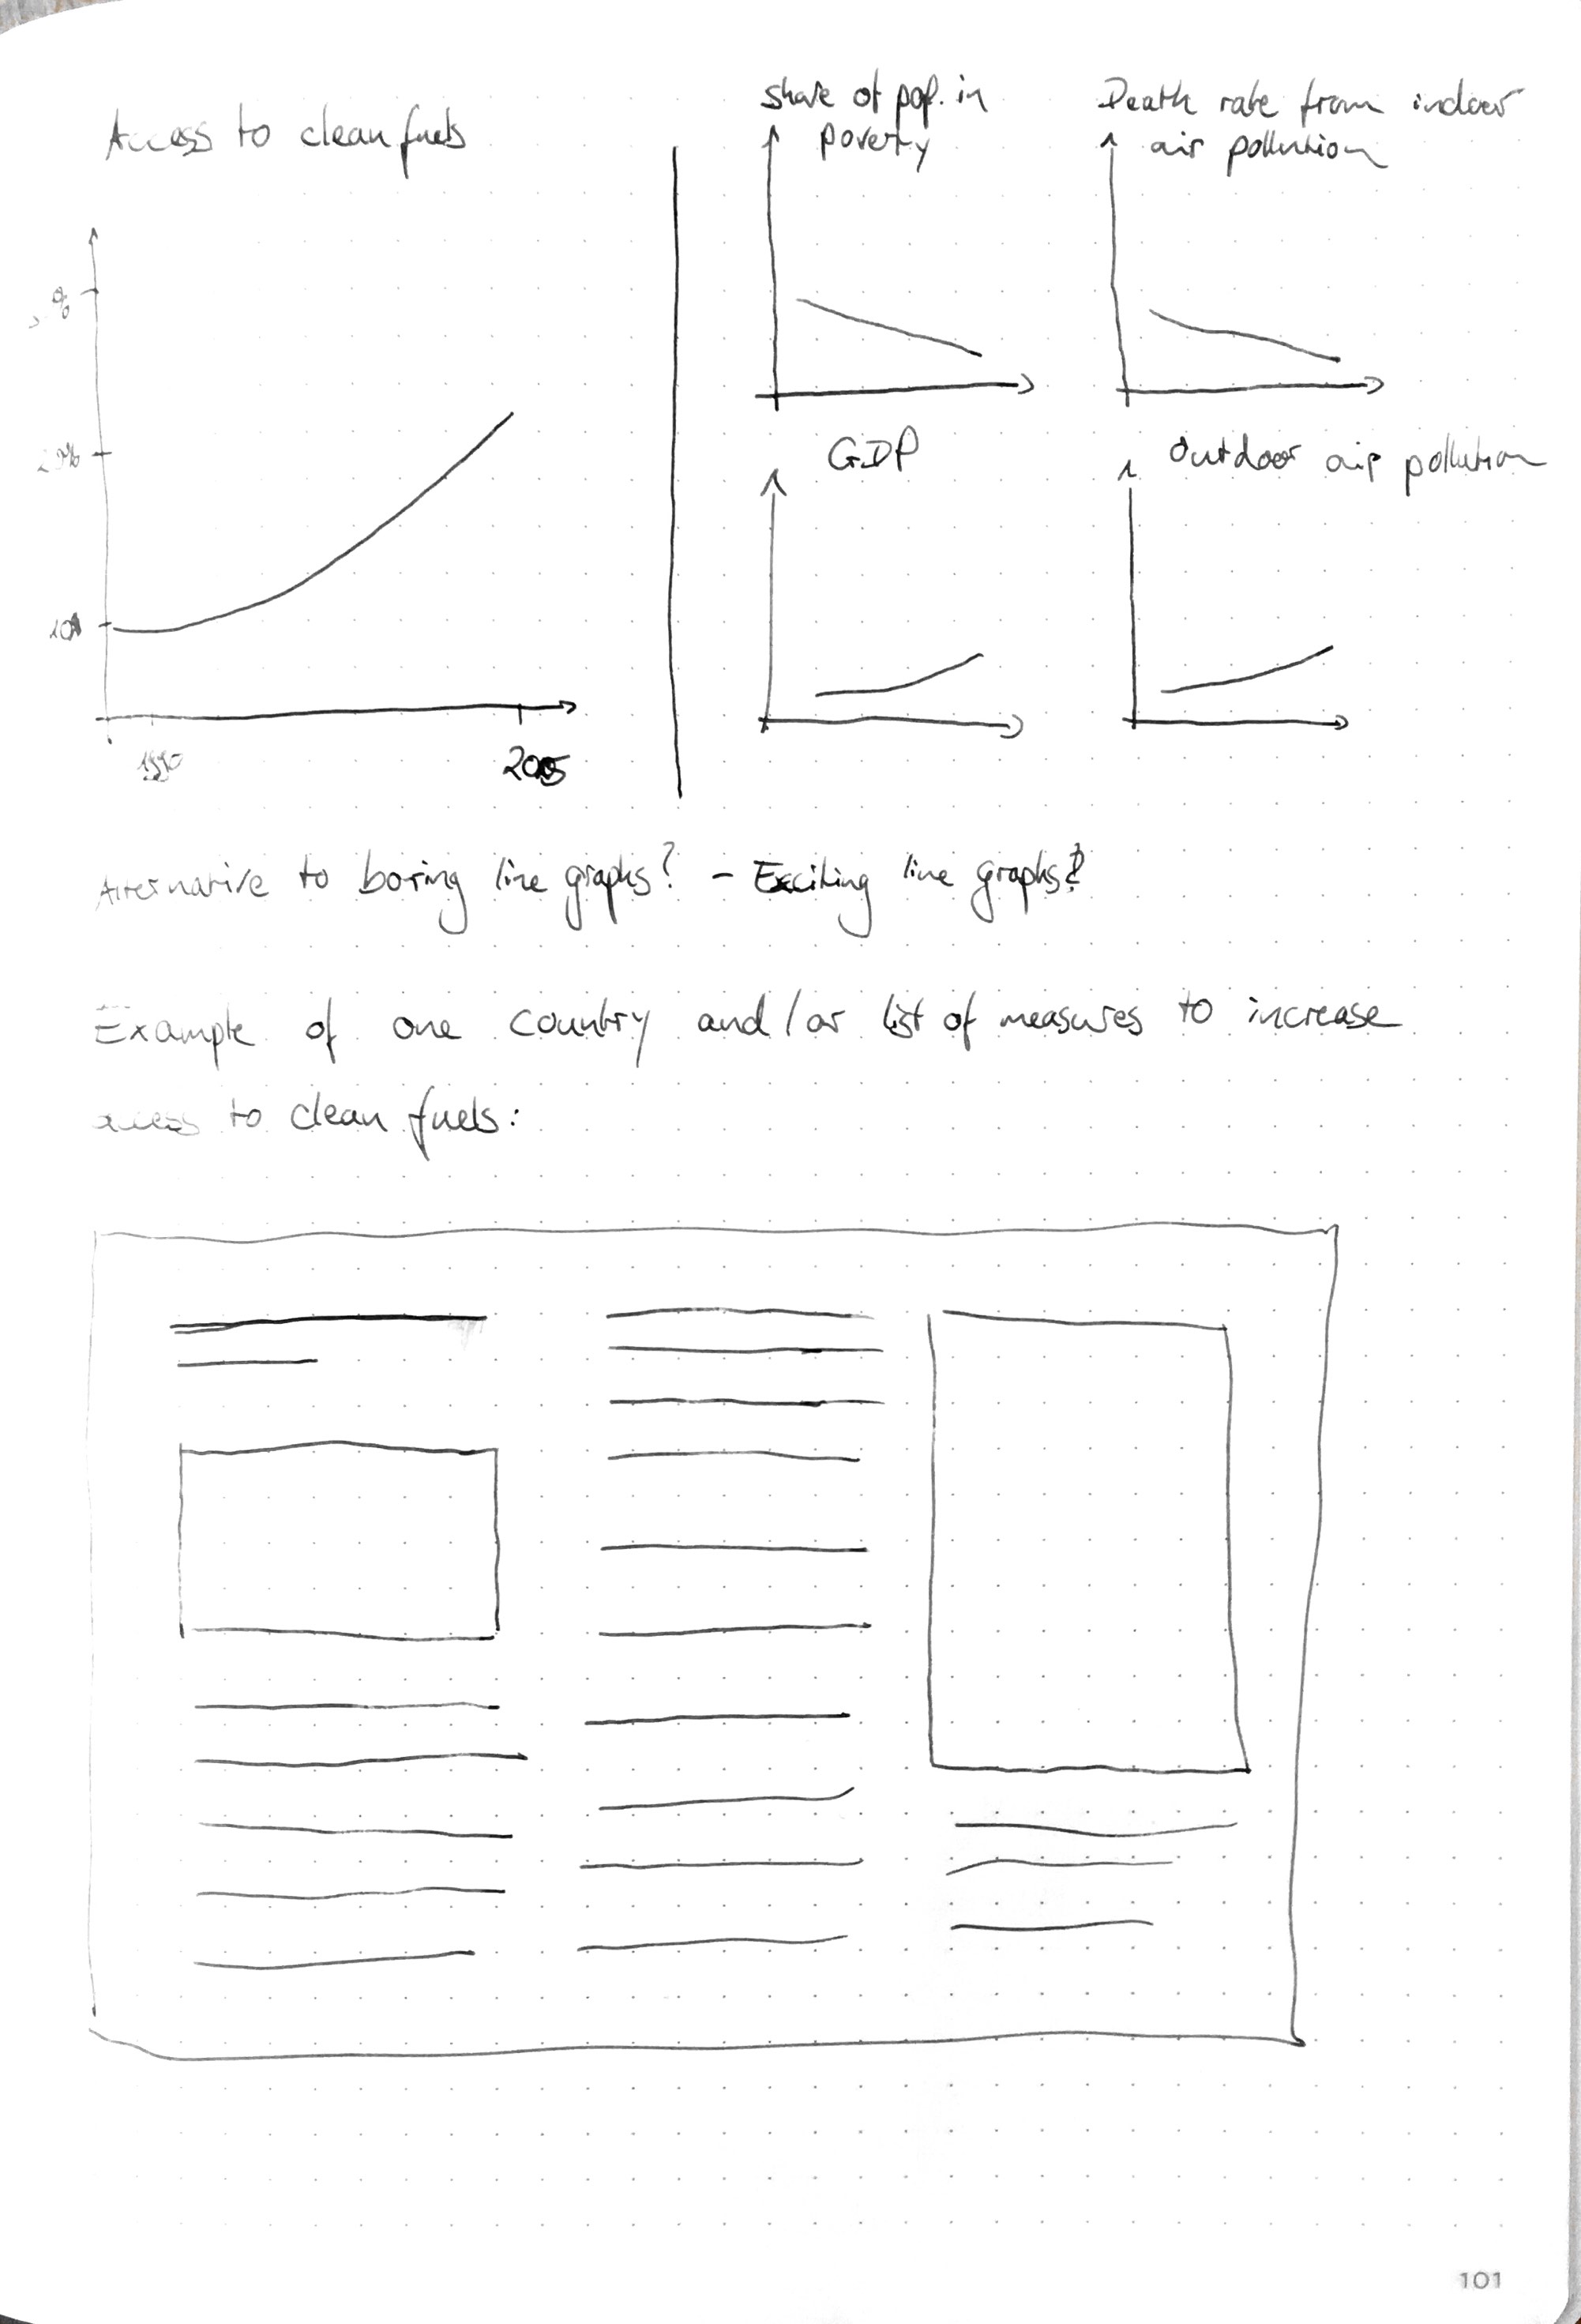 Access to clean fuels
Share of pop. in
poverty
Death rate from indoor
air pollution
%
10%
1990
GDP
Outdoor air pollution
Alternative to boring line graphs? – Exciting line graphs?
Example of one country and/or list of measures to increase
access to clean fuels:
101